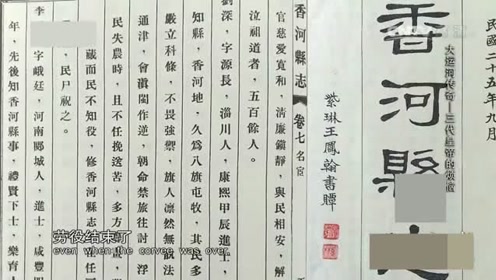 民國二十五年九月
香河縣
紫琳王鳳翰書
香河縣志 卷七 名宦
官慈愛寬和，清廉鎮靜，與民相安，解
泣祖道者，五百餘人。
劉深，字源長，淄川人，康熙甲辰進士，
知縣，香河地，久為八旗屯牧，其民多
嚴立科條，不畏強禦，旗人凜然無
通津，會滇閩作逆，朝命禁旅往討，浮
民失農時，且不任挽送苦，多方
藏而民不知役，修香河縣志
民尸祝之。
李 字峨廷，河南郾城人，進士，咸豐
年，先後知香河縣事，禮賢下士，樂育
劳役结束了
even when the corvee was over